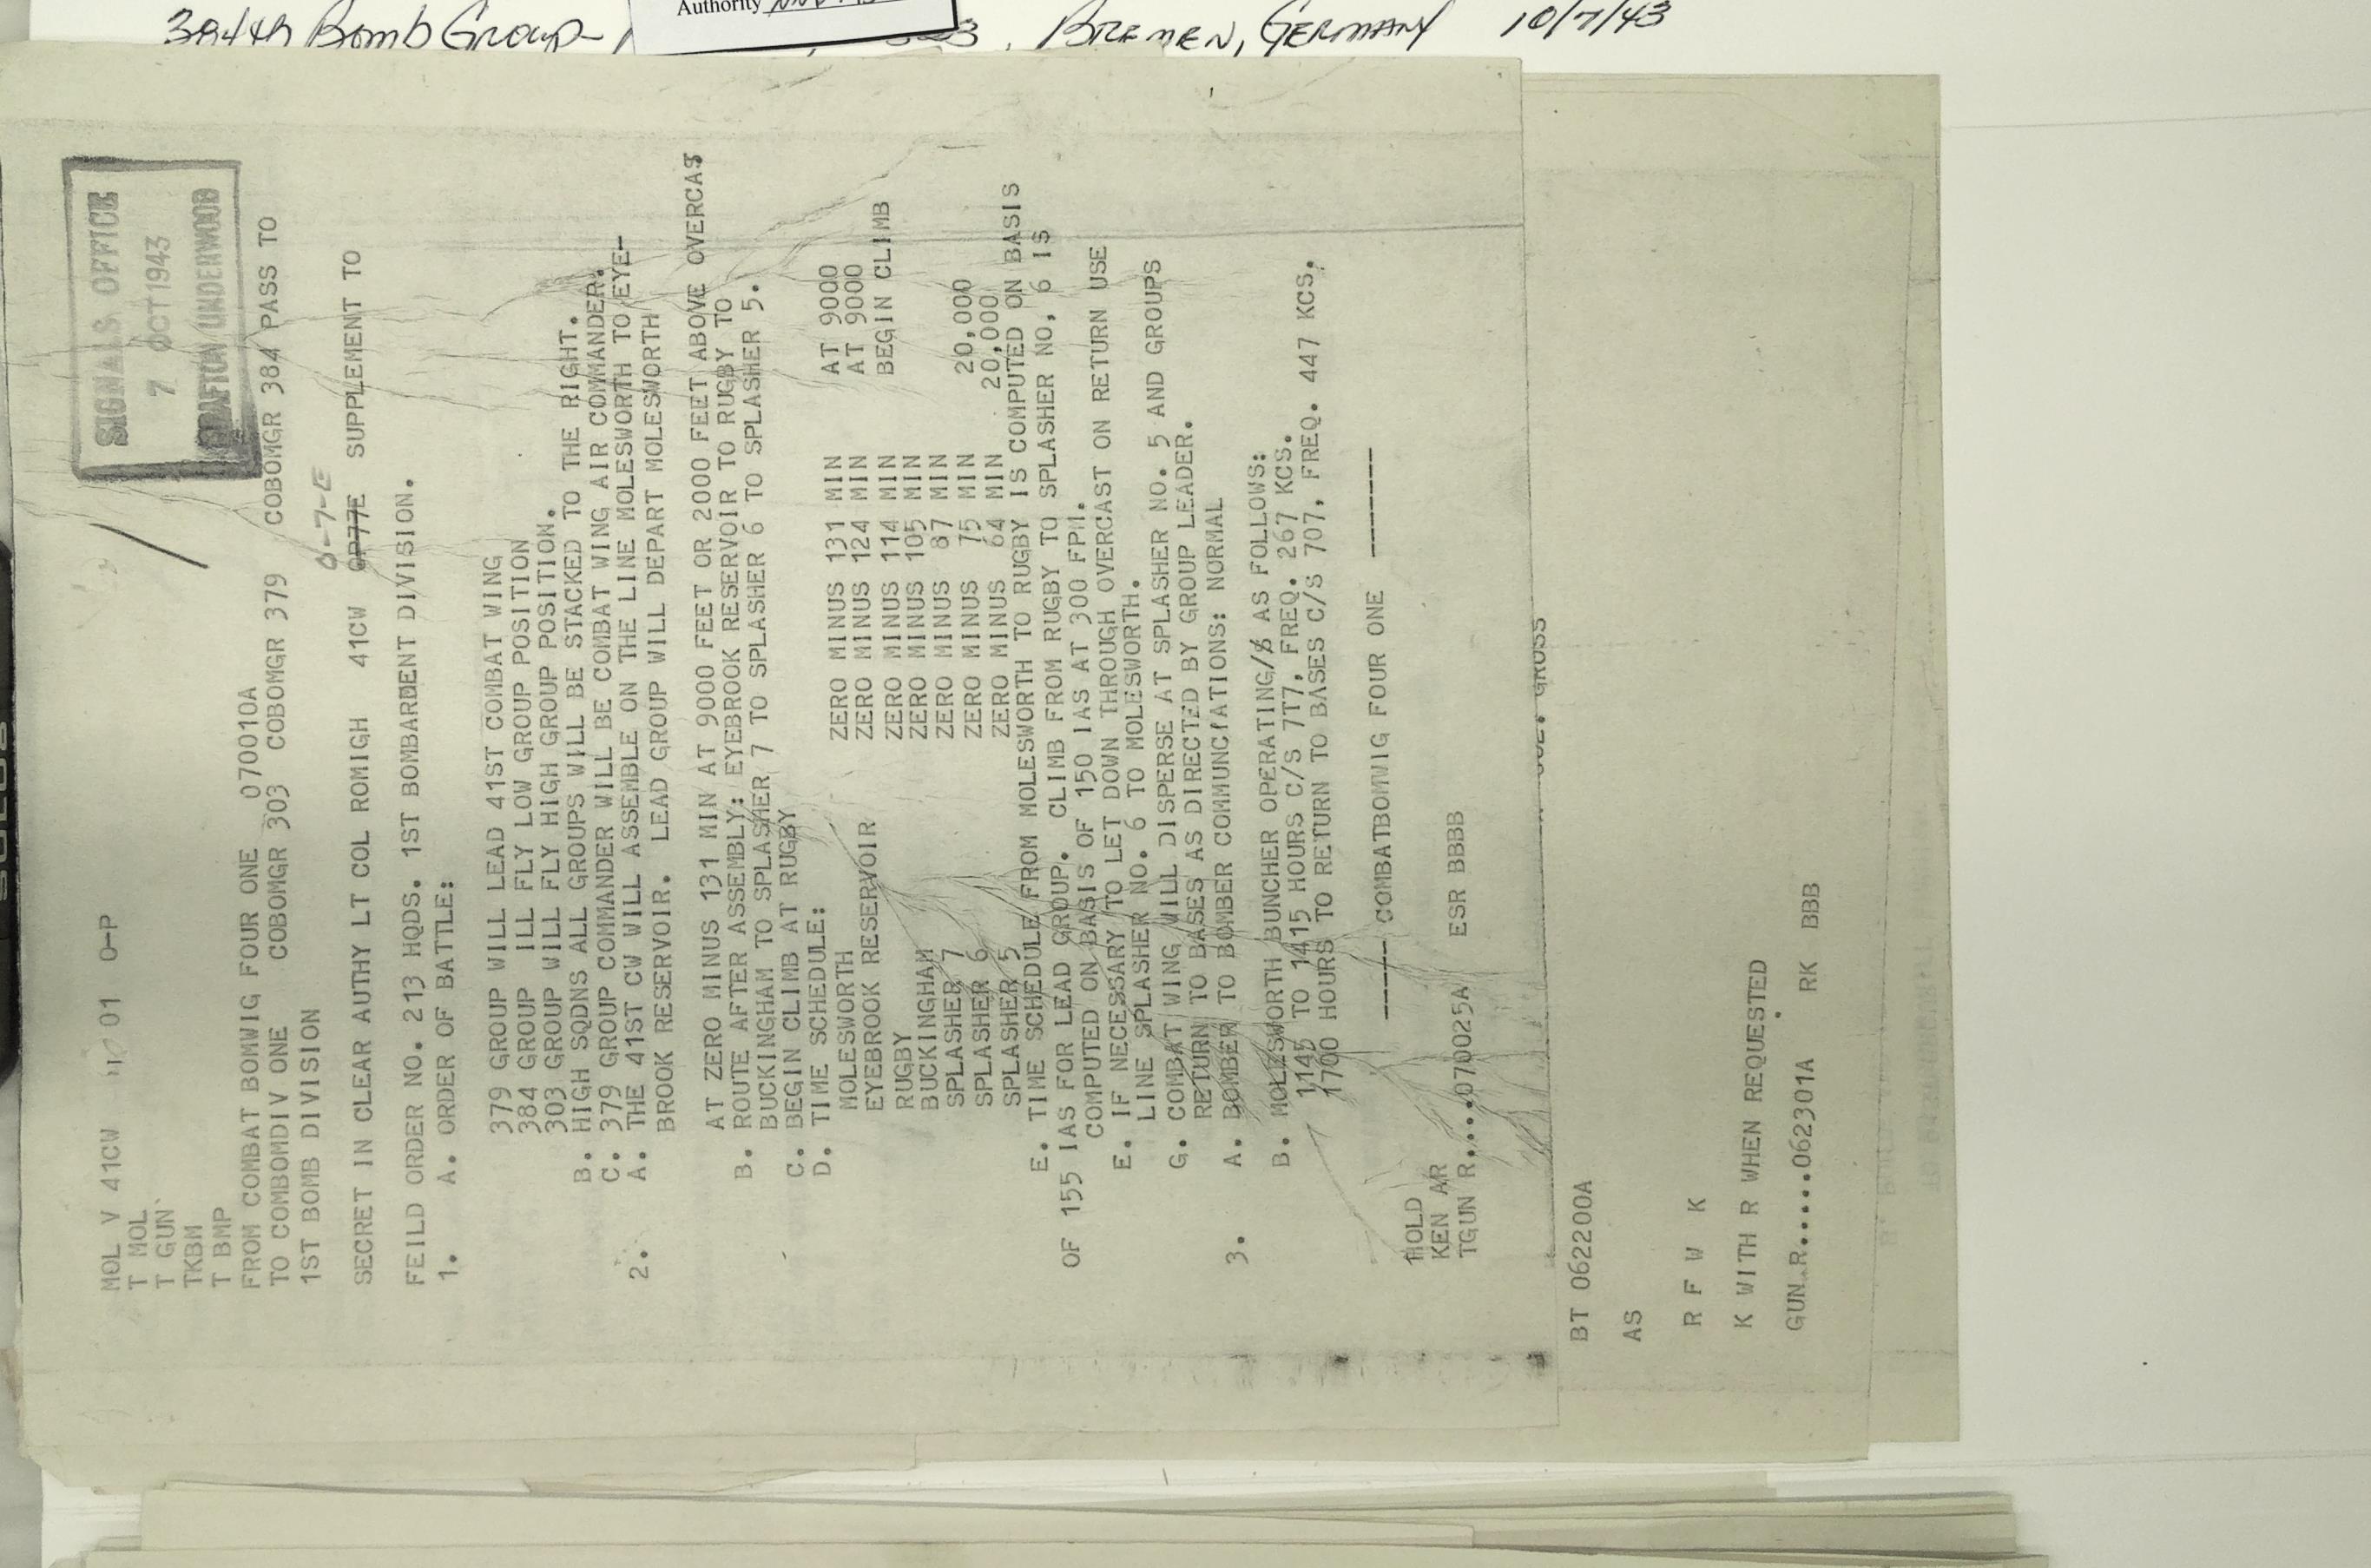 Authority
384th Bomb Group- Bremen, Germany 10/7/43
SIGNALS OFFICE
7 OCT 1943
GRAFTON UNDERWOOD
MOL V 41CW 01 O-P
T MOL
T GUN
TKBM
T BMP
FROM COMBAT BOMWIG FOUR ONE 070010A
TO COMBOMDIV ONE COBOMGR 303 COBOMGR 379 COBOMGR 384 PASS TO
1ST BOMB DIVISION
O-7-E
SECRET IN CLEAR AUTHY LT COL ROMIGH 41CW OP77E SUPPLEMENT TO
FEILD ORDER NO. 213 HQDS. 1ST BOMBARDENT DIVISION.
1. A. ORDER OF BATTLE:
379 GROUP WILL LEAD 41ST COMBAT WING
384 GROUP ILL FLY LOW GROUP POSITION
303 GROUP WILL FLY HIGH GROUP POSITION.
B. HIGH SQDNS ALL GROUPS WILL BE STACKED TO THE RIGHT.
C. 379 GROUP COMMANDER WILL BE COMBAT WING AIR COMMANDER.
2. A. THE 41ST CW WILL ASSEMBLE ON THE LINE MOLESWORTH TO EYE-
BROOK RESERVOIR. LEAD GROUP WILL DEPART MOLESWORTH
AT ZERO MINUS 131 MIN AT 9000 FEET OR 2000 FEET ABOVE OVERCAST
B. ROUTE AFTER ASSEMBLY: EYEBROOK RESERVOIR TO RUGBY TO
BUCKINGHAM TO SPLASHER 7 TO SPLASHER 6 TO SPLASHER 5.
C. BEGIN CLIMB AT RUGBY
D. TIME SCHEDULE:
MOLESWORTH ZERO MINUS 131 MIN AT 9000
EYEBROOK RESERVOIR ZERO MINUS 124 MIN AT 9000
RUGBY ZERO MINUS 114 MIN BEGIN CLIMB
BUCKINGHAM ZERO MINUS 105 MIN
SPLASHER 7 ZERO MINUS 87 MIN
SPLASHER 6 ZERO MINUS 75 MIN 20,000
SPLASHER 5 ZERO MINUS 64 MIN 20,000
E. TIME SCHEDULE FROM MOLESWORTH TO RUGBY IS COMPUTED ON BASIS
OF 155 IAS FOR LEAD GROUP. CLIMB FROM RUGBY TO SPLASHER NO, 6 IS
COMPUTED ON BASIS OF 150 IAS AT 300 FPM.
E. IF NECESSARY TO LET DOWN THROUGH OVERCAST ON RETURN USE
LINE SPLASHER NO. 6 TO MOLESWORTH.
G. COMBAT WING WILL DISPERSE AT SPLASHER NO. 5 AND GROUPS
RETURN TO BASES AS DIRECTED BY GROUP LEADER.
3. A. BOMBER TO BOMBER COMMUNCIATIONS: NORMAL
B. MOLESWORTH BUNCHER OPERATING/% AS FOLLOWS:
1145 TO 1415 HOURS C/S 7T7, FREQ. 267 KCS.
1700 HOURS TO RETURN TO BASES C/S 707, FREQ. 447 KCS.
------ COMBATBOMWIG FOUR ONE -------
HOLD
KEN AR
TGUN R....070025A ESR BBBB
GROSS
BT 062200A
AS
R F W K
K WITH R WHEN REQUESTED
GUN R......062301A RK BBB